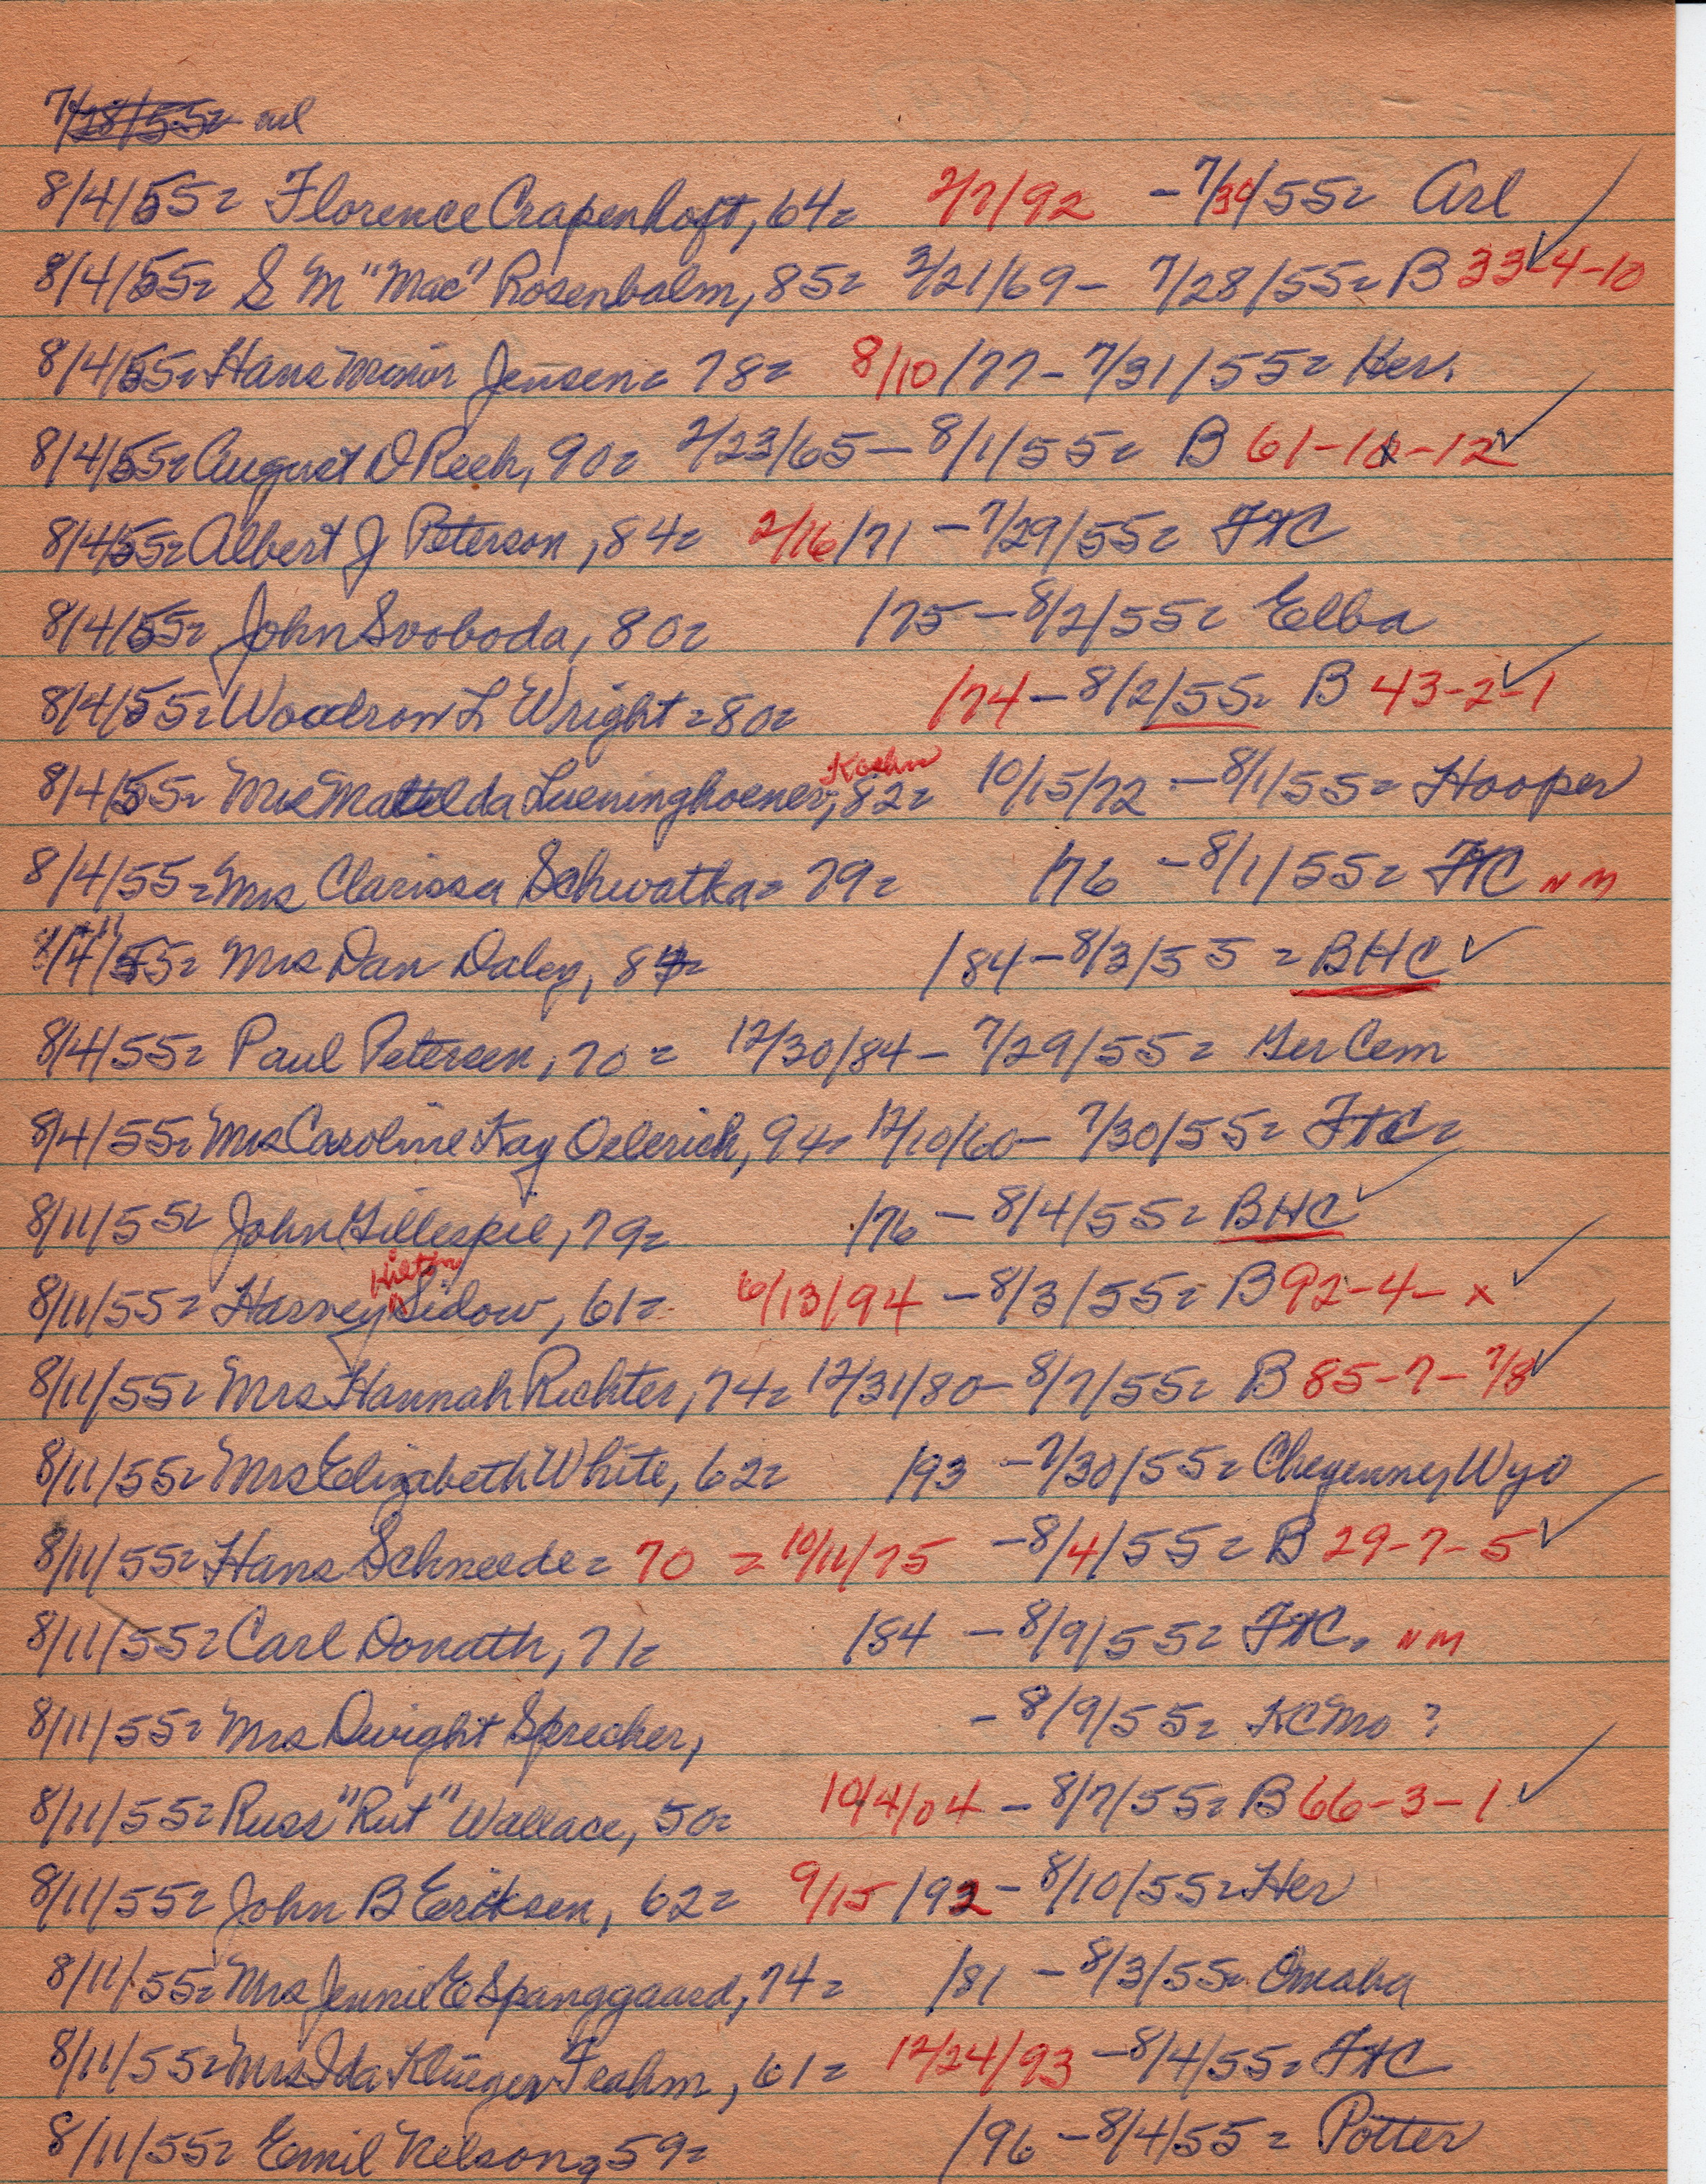 7/28/55=
8/4/55= Florence Crapenhoft, 64= 2/7/92 - 7/30/55= Arl ✓
8/4/55= S M "Mac" Rosenbalm, 85= 3/21/69 - 7/28/55= B 33-4-10 ✓
8/4/55= Hans Jensen = 78= 8/10/77 - 7/31/55= Her.
8/4/55= August D Reeh, 90= 2/23/65 - 8/1/55= B 61-10-12 ✓
8/4/55= Albert J Peterson, 84= 2/16/71 - 7/29/55= FtC
8/4/55= John Svoboda, 80= /75 - 8/2/55= Elba
8/4/55= Woodrow L Wright = 80= /74 - 8/2/55= B 43-2-1 ✓
8/4/55= Mrs Matilda Lueninghoener, Koehn 82= 10/15/72 - 8/1/55= Hooper
8/4/55= Mrs Clarissa Schwatka = 79= /76 - 8/1/55= FtC NM
8/4/55= Mrs Dan Daley, /84 - 8/3/55 = BHC ✓
8/4/55= Paul Petersen, 70 = 12/30/84 - 7/29/55= Ger Cem
8/4/55= Mrs Caroline Kay Oelerich, 94= 12/10/60 - 7/30/55= FtC=
8/11/55= John Gillespie, 79= /76 - 8/4/55= BHC ✓
8/11/55= Harvey Hilton Sidow, 61= 6/13/94 - 8/3/55= B 92-4-x ✓
8/11/55= Mrs Hannah Richter, 74= 12/31/80 - 8/7/55= B 85-7-7/8 ✓
8/11/55= Mrs Elizabeth White, 62= /93 - 7/30/55= Cheyenne, Wyo
8/11/55= Hans Schneede = 70 = 10/11/75 - 8/4/55= B 29-7-5 ✓
8/11/55= Carl Donath, 71= /84 - 8/9/55= FtC. NM
8/11/55= Mrs Dwight Sprecher, - 8/9/55= KCMo ?
8/11/55= Russ "Rut" Wallace, 50= 10/4/04 - 8/7/55= B 66-3-1 ✓
8/11/55= John B Eriksen, 62= 9/15/92 - 8/10/55= Her
8/11/55= Mrs Jennie E Spanggaard, 74= /81 - 8/3/55= Omaha
8/11/55= Mrs Ida Klueger Frahm, 61= 12/24/93 - 8/4/55= FtC
8/11/55= Emil Nelson, 59= /96 - 8/4/55= Potter